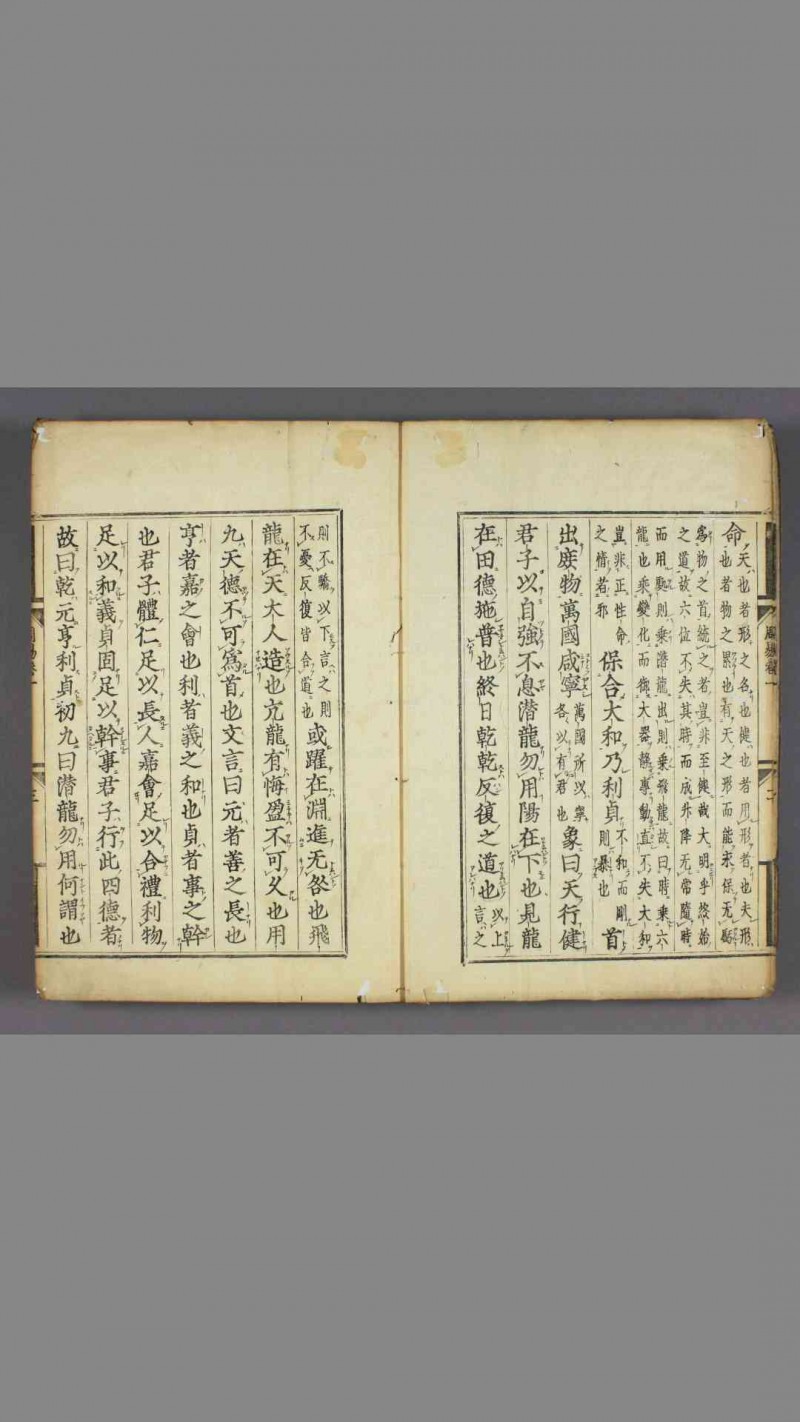 命天也者形之名也健也者用形者也夫形也者物之累也有天之形而能永保无虧
爲物之首統之者豈非至健哉大明乎終始之道故六位不失其時而成升降无常隨時
而用處則乘潜龍出則乘飛龍故曰時乘六龍也乘變化而御大器靜專動直不失大和
豈非正性命之情者邪保合大和乃利貞不和而剛則暴也首
出庶物萬國咸寧萬國所以寧各以有君也象曰天行健
君子以自強不息潜龍勿用陽在下也見龍
在田德施普也終日乾乾反復之道也以上言之
則不驕以下言之則不憂反復皆合道也或躍在淵進无咎也飛
龍在天大人造也亢龍有悔盈不可久也用
九天德不可爲首也文言曰元者善之長也
亨者嘉之會也利者義之和也貞者事之幹
也君子體仁足以長人嘉會足以合禮利物
足以和義貞固足以幹事君子行此四德者
故曰乾元亨利貞初九曰潜龍勿用何謂也